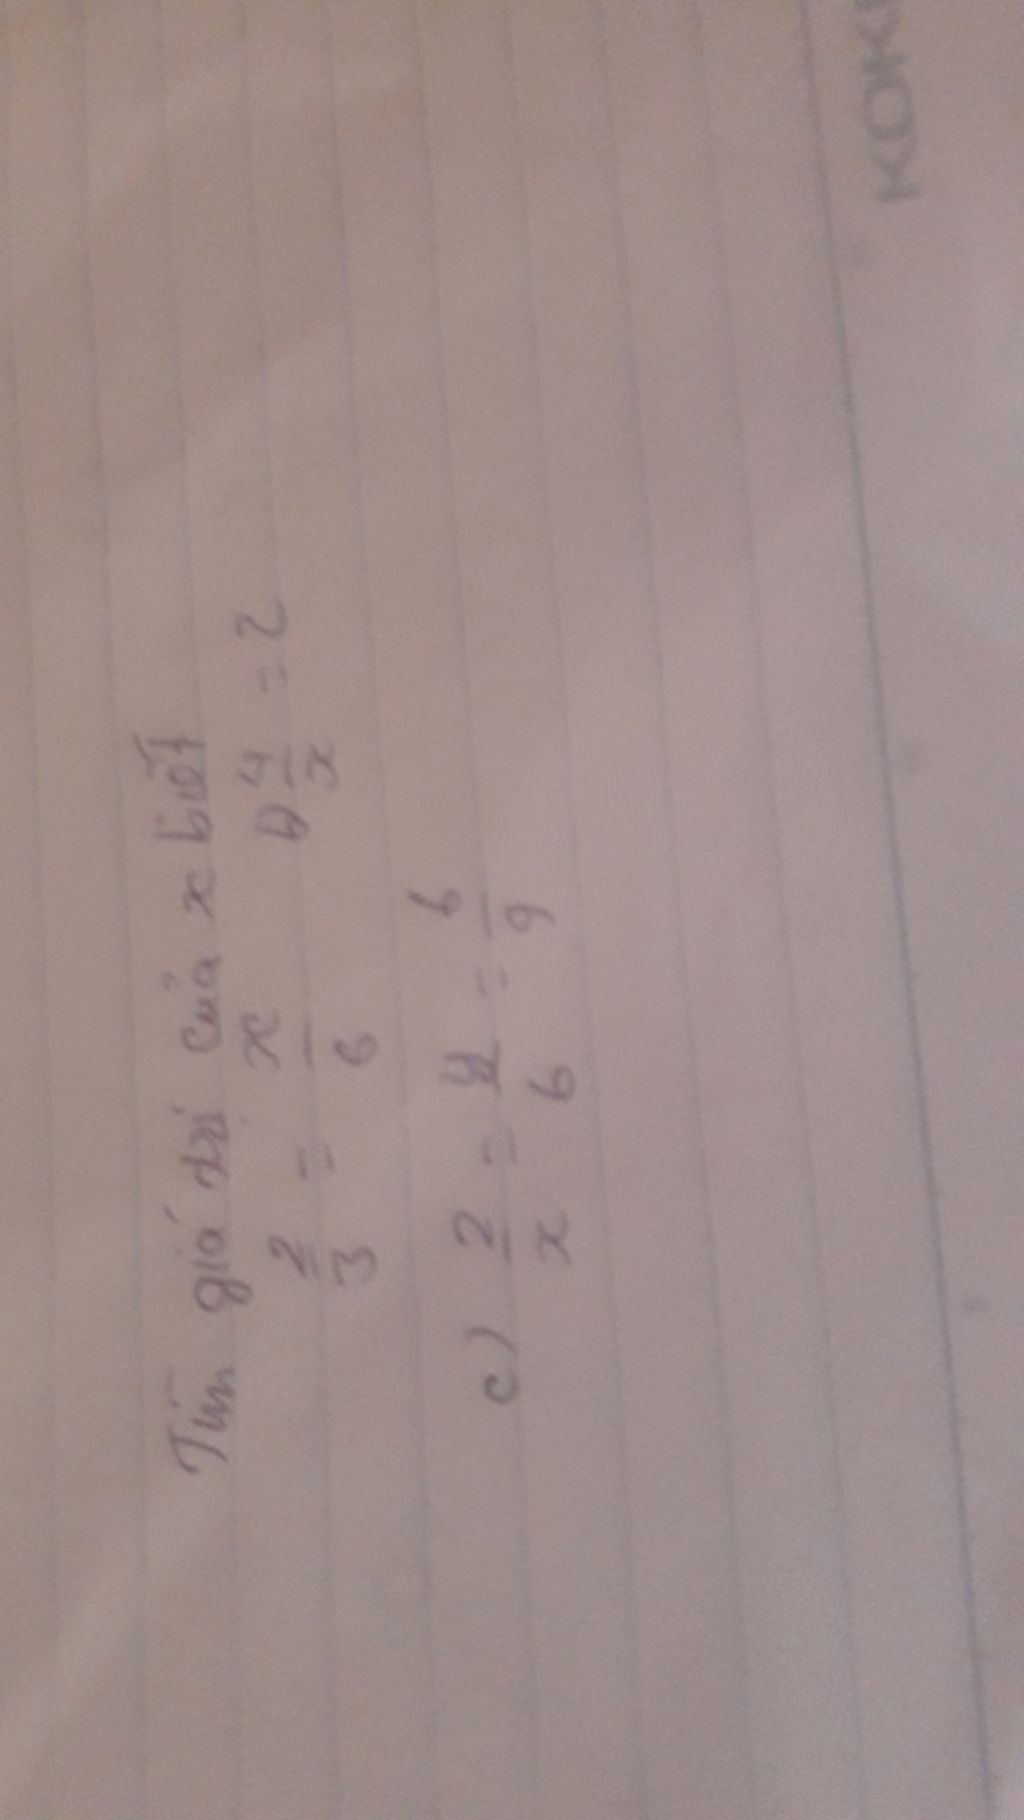 Tìm giá trị của x biết
2/3 = x/6 b) 4/x = 2
c) 2/x = y/6 = 6/9
KOK